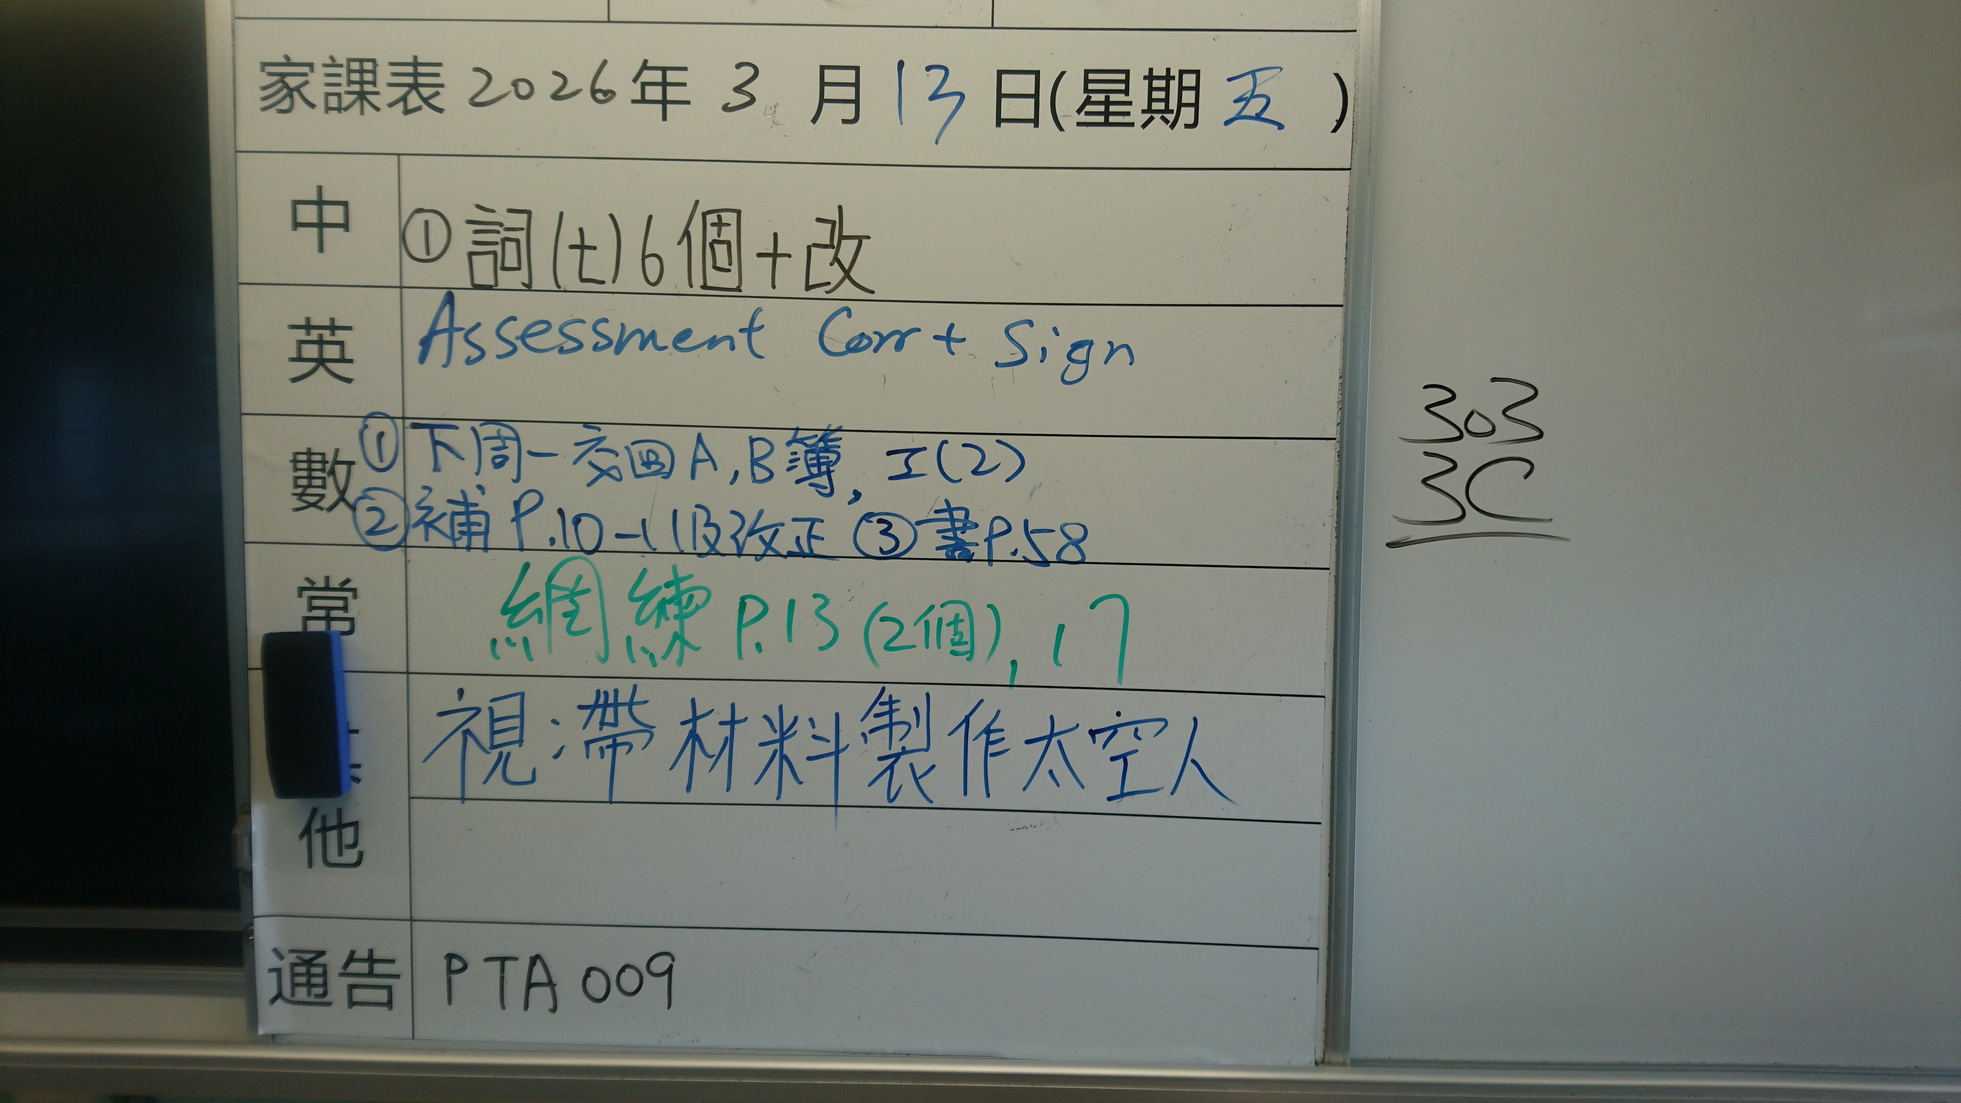 家課表 2026年 3 月 13 日(星期 五 )
中 ① 詞(七)6個+改
英 Assessment Corr + Sign
數 ① 下周一交回A,B簿, 工(2)
② 補 P.10-11及改正 ③ 書P.58
常 網練 P.13 (2個), 17
他 視:帶材料製作太空人
通告 PTA 009
303
3C